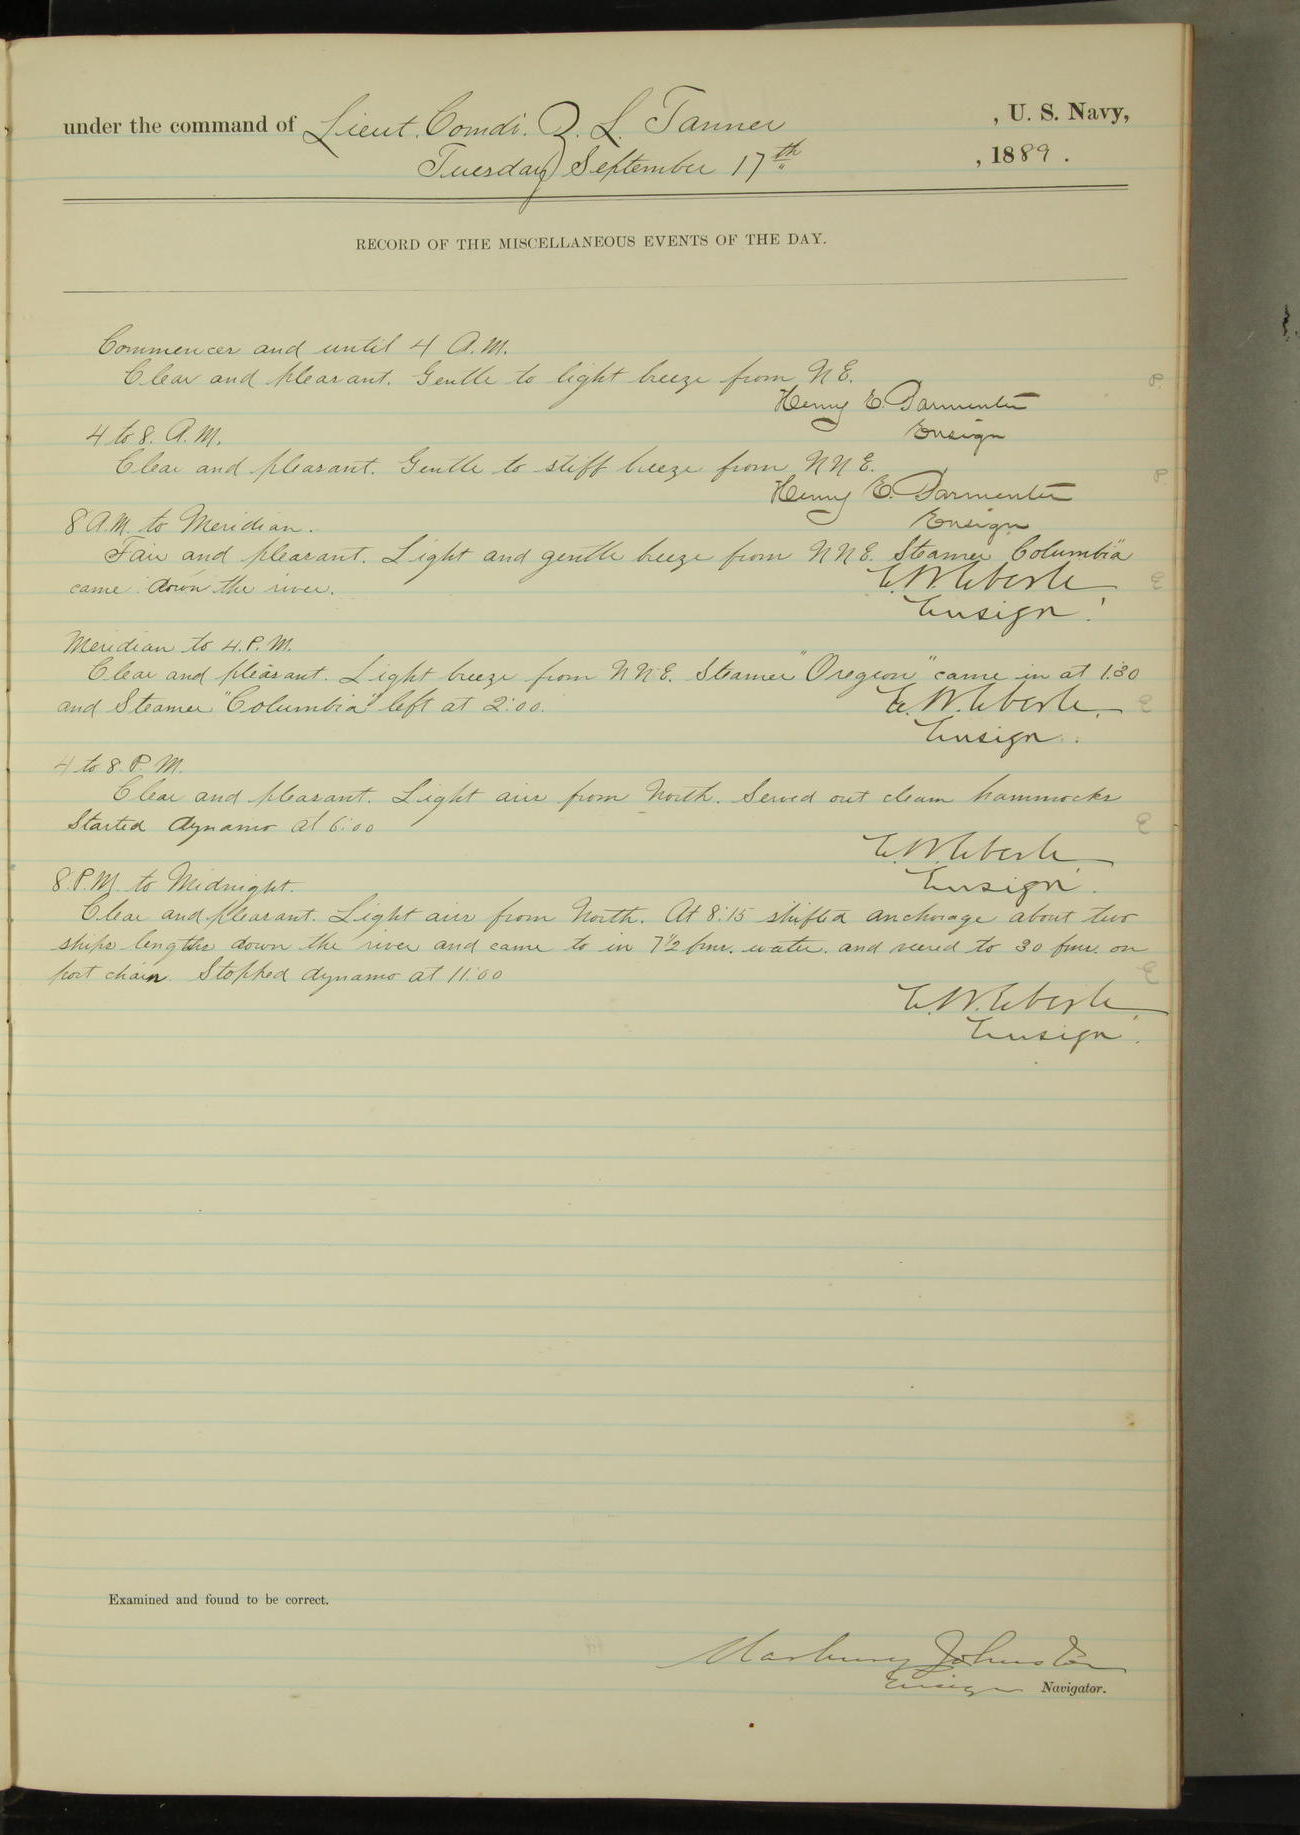 under the command of Lieut. Comdr. Z. L. Tanner , U. S. Navy,
Tuesday September 17th , 1889.
RECORD OF THE MISCELLANEOUS EVENTS OF THE DAY.
Commences and until 4 A.M.
Clear and pleasant. Gentle to light breeze from NE.
P.
Henry E. Parmenter
Ensign
4 to 8. A.M.
Clear and pleasant. Gentle to stiff breeze from NNE.
P.
Henry E. Parmenter
Ensign
8 A.M. to Meridian.
Fair and pleasant. Light and gentle breeze from NNE. Steamer Columbia"
came down the river.
E.W. Eberle
E
Ensign.
Meridian to 4. P. M.
Clear and pleasant. Light breeze from NNE. Steamer "Oregon" came in at 1:30
and Steamer "Columbia" left at 2:00.
E.W. Eberle.
E
Ensign.
4 to 8. P. M.
Clear and pleasant. Light airs from North. Served out clean hammocks
Started dynamo at 6:00
E
E.W. Eberle
Ensign.
8. P.M. to Midnight.
Clear and pleasant. Light airs from North. At 8:15 shifted anchorage about two
ships lengths down the river and came to in 7 1/2 fms. water. and veered to 30 fms. on
port chain. Stopped dynamo at 11:00
E
E.W. Eberle.
Ensign.
Examined and found to be correct.
Marbury Johnston
Ensign Navigator.